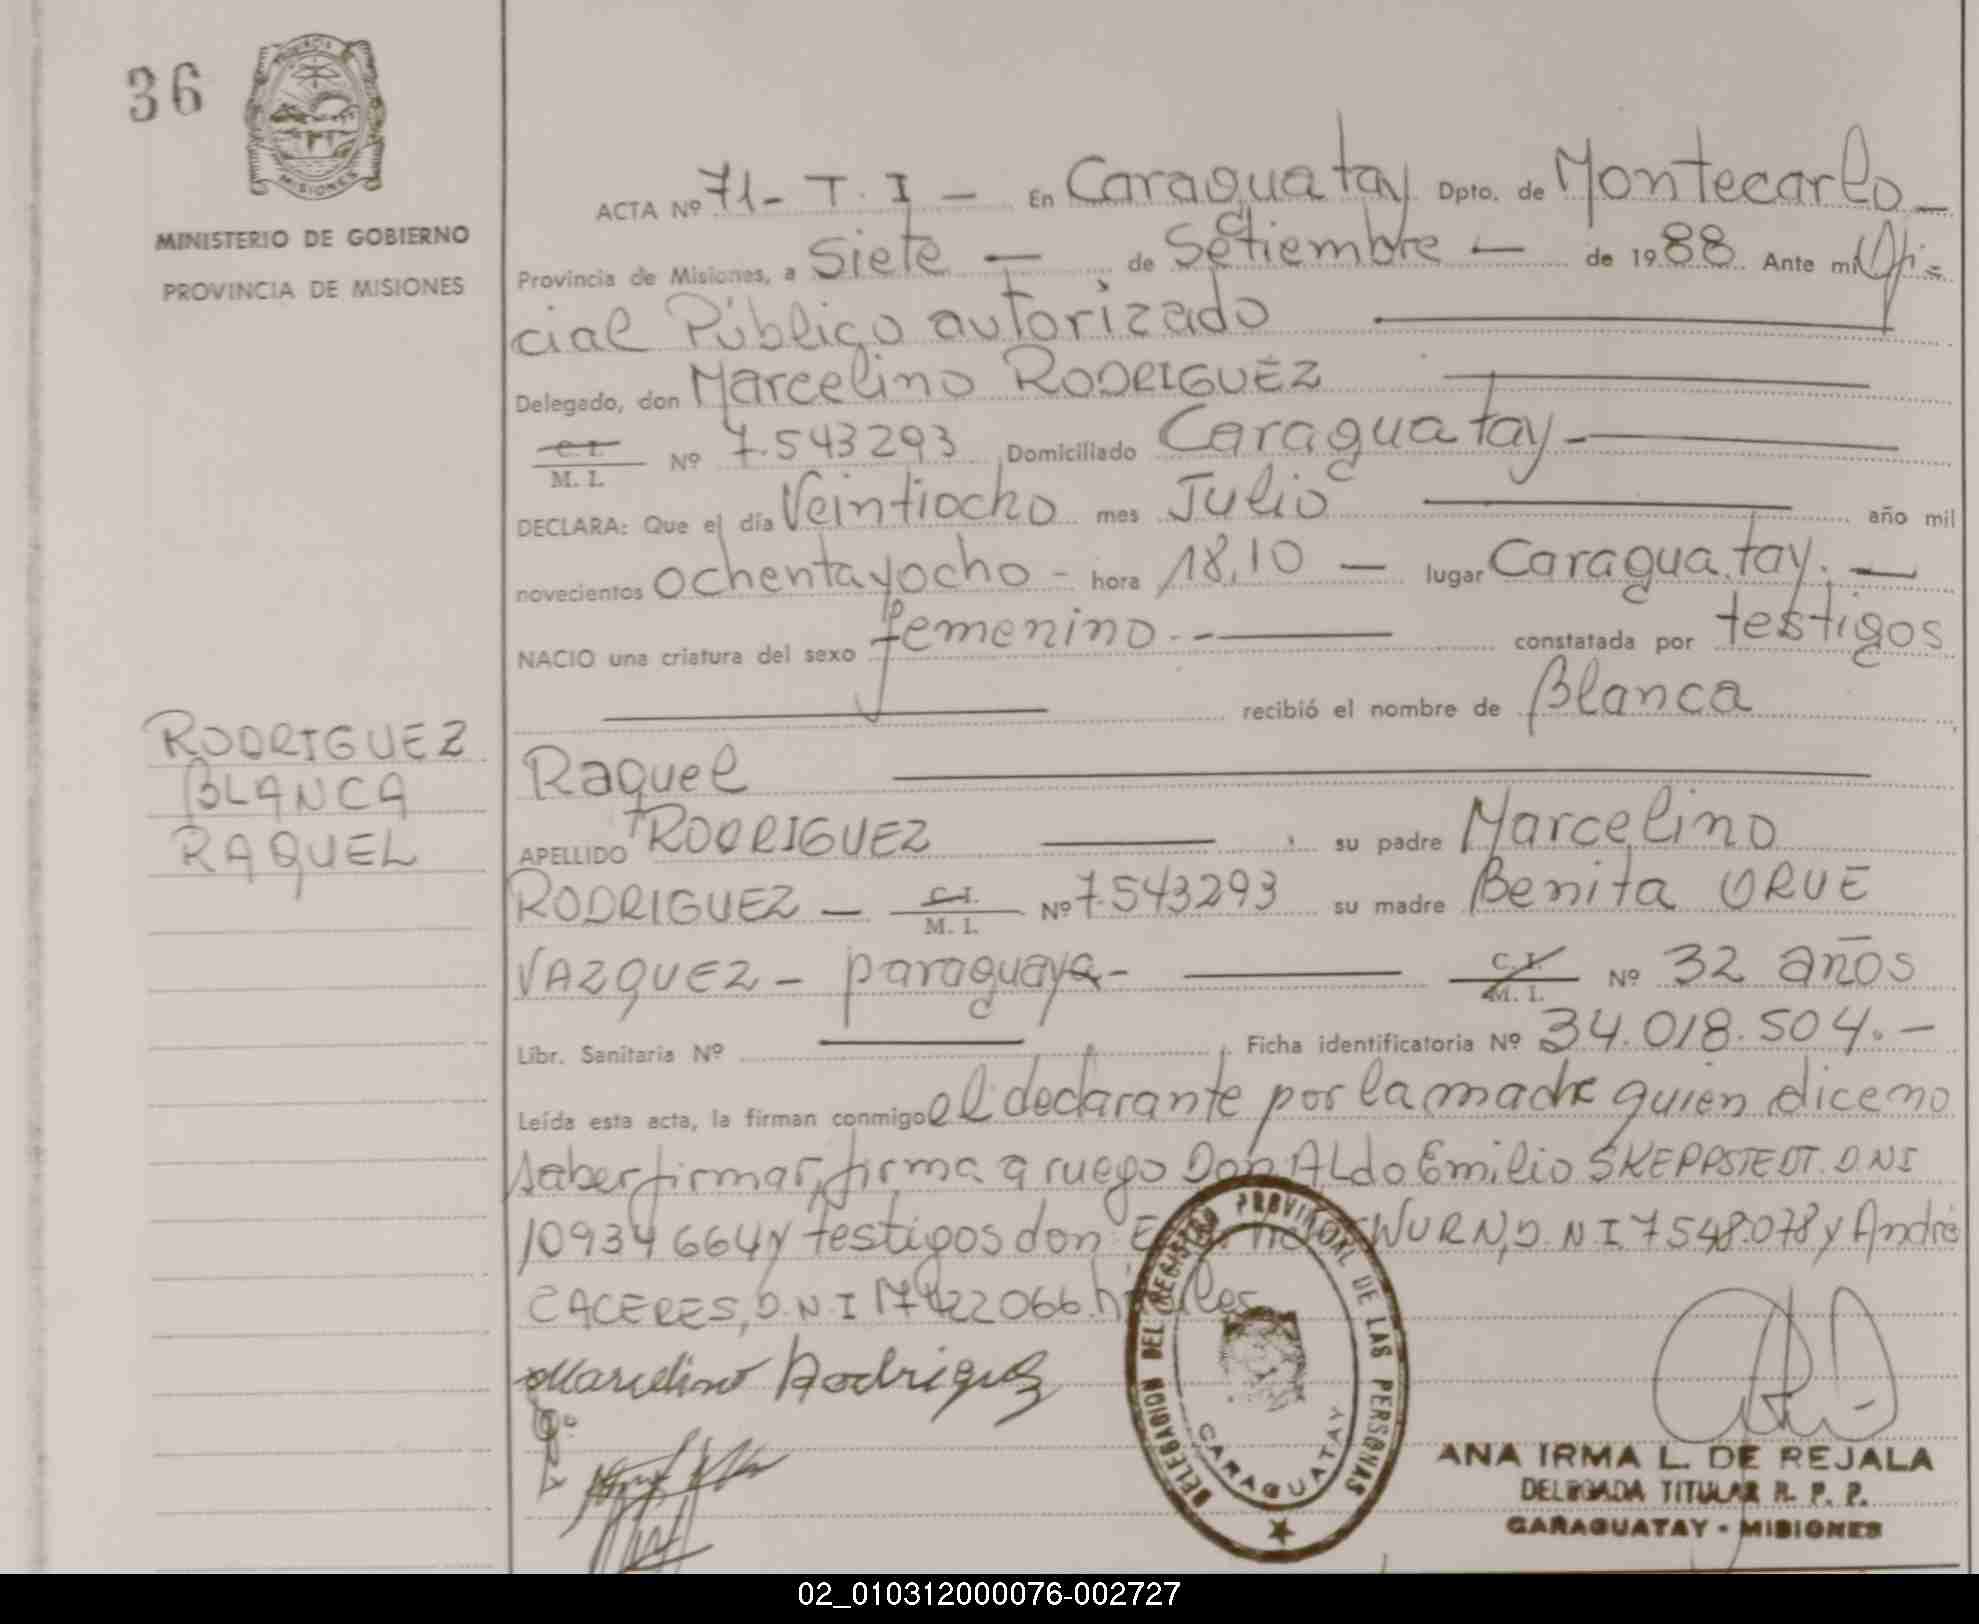 36
PROVINCIA
MISIONES
MINISTERIO DE GOBIERNO
PROVINCIA DE MISIONES
RODRIGUEZ
BLANCA
RAQUEL
ACTA Nº 71- T. I - En Caraguatay Dpto. de Montecarlo -
Provincia de Misiones, a Siete - de Setiembre - de 1988 Ante mi Ofi=
cial Público autorizado
Delegado, don Marcelino RODRIGUEZ
C. I.
M. I. Nº 7.543293 Domiciliado Caraguatay -
DECLARA: Que el día Veintiocho mes Julio año mil
novecientos ochentayocho - hora 18,10 - lugar Caraguatay. -
NACIO una criatura del sexo femenino - - constatada por testigos
recibió el nombre de Blanca
Raquel
APELLIDO RODRIGUEZ su padre Marcelino
RODRIGUEZ - C. I.
M. I. Nº 7.543293 su madre Benita ORUE
VAZQUEZ - paraguaya - C. I.
M. I. Nº 32 años
Libr. Sanitaria Nº Ficha identificatoria Nº 34.018.504. -
Leída esta acta, la firman conmigo el declarante por la madre quien dice no
saber firmar, firma a ruego Don ALdo Emilio SKEPPSTEDT. D.N I
10934664 y testigos don WURN, D.N I. 7548.078 y Andrés
CACERES, D.N.I 17422066. hábiles
Marcelino Rodriguez
DELEGACION DEL REGISTRO PROVINCIAL DE LAS PERSONAS
CARAGUATAY
ANA IRMA L. DE REJALA
DELEGADA TITULAR R. P. P.
CARAGUATAY - MISIONES
02_010312000076-002727